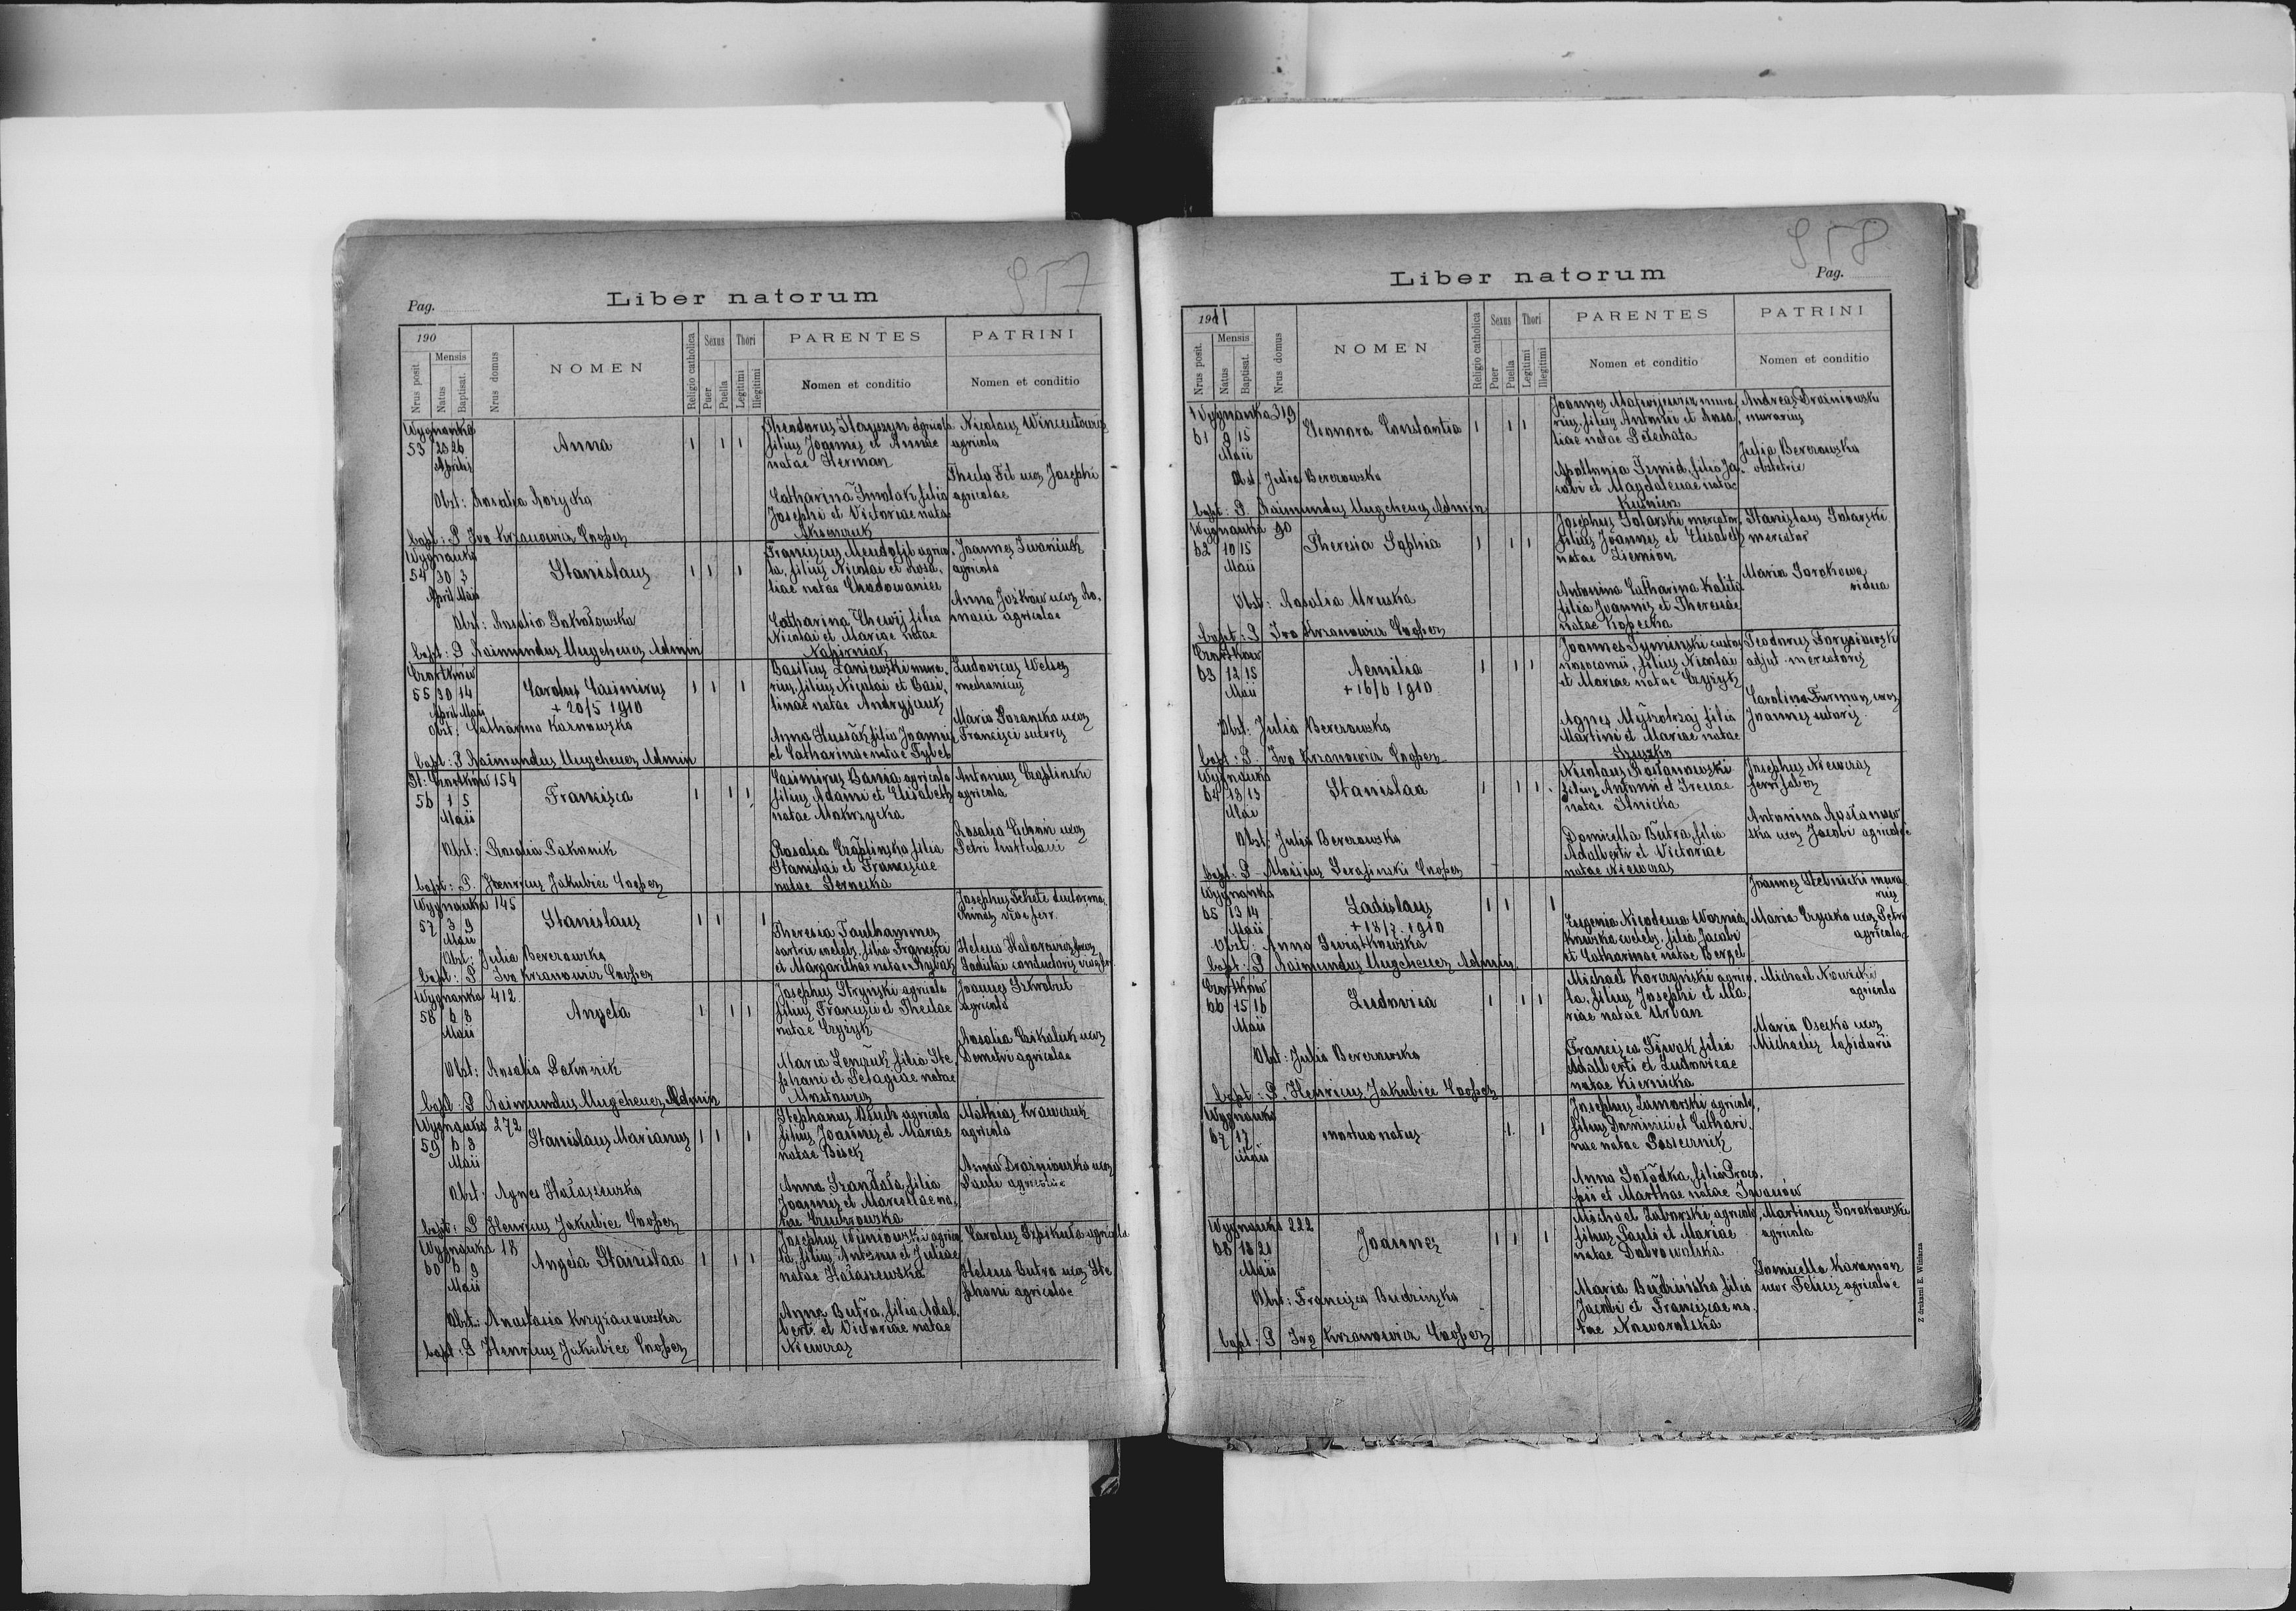 957
Pag.
Liber natorum
190
Nrus posit.
Mensis
Natus
Baptisat.
Nrus domus
NOMEN
Religio catholica
Sexus
Puer
Puella
Thori
Legitimi
Illegitimi
PARENTES
Nomen et conditio
PATRINI
Nomen et conditio
Wygnanka
53 25 26
Aprilis
Anna
1 1 1
Theodorus Horyszyn agricola
filius Joannis et Annae
natae Herman
Catharina Smolak filia
Josephi et Victoriae natae
Nicolaus Wincentowicz
agricola
Thecla Fil uxor Josephi
agricolae
Obst: Rosalia Rozycka
bapt: P Ivo Krzanowicz Cooper
Wygnanka
54 30 3
April Maii
Stanislaus
1 1 1
Franciscus Mendolil agrico
la, filius Nicolai et Rosa.
liae natae Chodowaniec
Catharina Chewij filia
Nicolai et Mariae natae
Napirniak
Joannes Iwaniuch
agricola
Anna Joskow uxor Ro.
mani agricolae
Obst: Rosalia Sokołowska
bapt: P Raimundus Mugeheuer Admin
Czortkow
55 30 14
April Maii
Carolus Casimirus
+ 20/5 1910
1 1 1
Basilius Zaniewski mura.
rius, filius Nicolai et Basi.
linae natae Andryjouk
Anna Hussak filia Joannis
et Catharinae natae Tybel
Ludovicus Welsez
mechanicus
Maria Poranska uxor
Francisci sutoris
Obst: Catharina Karnowska
bapt: P Raimundus Mugeheuer Admin
St: Czortkow 154
56 1 5
Maii
Francisca
1 1 1
Casimirus Bania agricola
filius Adami et Elisabeth
natae Mokrzycka
Rosalia Czaplinska filia
Stanislai et Franciscae
natae Sernecka
Antonius Czaplinski
agricola
Rosalia Cichon uxor
Petri hortulani
Obst: Rosalia Pakonik
bapt: P. Henricus Jakubiec Cooper
Wygnanka 145
57 3 9
Maii
Stanislaus
1 1 1
Theresia Faulhammer
sartrix caelebs, filia Francisci
et Margarithae natae Rybak
Josephus Fekete ductor ma.
chinae viae ferr.
Helena Halarewicz uxor
Ladislai conductoris viae ferr
Obst: Julia Berezowska
bapt: P Ivo Krzanowicz Cooper
Wygnanka 412.
58 6 8
Maii
Angela
1 1 1
Josephus Stryjski agricola
filius Francisci et Theclae
natae Czyzyk
Maria Lenczuk filia Ste
phani et Pelagiae natae
Joannes Szkrobut
agricola
Rosalia Cikaluk uxor
Demetri agricolae
Obst: Rosalia Pakonik
bapt: P Raimundus Mugeheuer Admin
Wygnanka 272
59 6 8
Maii
Stanislaus Marianus
1 1 1
Stephanus Dziub agricola
filius Joannis et Mariae
natae Bisek
Anna Szandała filia
Joannis et Marcellae na.
tae Czuczrowska
Mathias Krawczuk
agricola
Anna Drozniowska uxor
Pauli agricolae
Obst: Agnes Hałaszewska
bapt: P Henricus Jakubiec Cooper
Wygnanka 18
60 6 9
Maii
Angela Stanislaa
1 1 1
Josephus Wisniowski agrico
la, filius Antonii et Juliae
natae Hałaszewska
Anna Butra, filia Adal.
berti et Victoriae natae
Niewczas
Carolus Szpikuła agricola
Helena Butra uxor Ste
phani agricolae
Obst: Anastasia Krzyzanowska
bapt: P Henricus Jakubiec Cooper
958
Liber natorum
Pag.
1911
Nrus posit.
Mensis
Natus
Baptisat.
Nrus domus
NOMEN
Religio catholica
Sexus
Puer
Puella
Thori
Legitimi
Illegitimi
PARENTES
Nomen et conditio
PATRINI
Nomen et conditio
Wygnanka 319
61 9 15
Maii
Eleonora Constantia
1 1 1
Joannes Matwijewicz mura
rius, filius Antonii et Rosa
liae natae Pelechata
Apollonia Szmid, filia Ja.
cobi et Magdalenae natae
Kusnierz
Andreas Drozniowski
murarius
Julia Berezowska
obstetrix
Obst: Julia Berezowska
bapt: P. Raimundus Mugeheuer Admin
Wygnanka 90
62 10 15
Maii
Theresia Sophia
1 1 1
Josephus Solarski mercator.
filius Joannis et Elisabeth
natae Ziemion
Antonina Catharina Kalita
filia Joannis et Theresiae
natae Kopecka
Stanislaus Solarski
mercator
Maria Sorokowa
vidua
Obst: Rosalia Mruska
bapt: P Ivo Krzanowicz Cooper
Czortkow
63 12 15
Maii
Aemilia
+ 16/6 1910
1 1 1
Joannes Tyminski custos
nosocomii, filius Nicolai
et Mariae natae Czyzyk
Agnes Mystotrzaj filia
Martini et Mariae natae
Teodorus Farysiowski
adjut. mercatoris
Carolina Furman uxor
Joannis sutoris
Obst: Julia Berezowska
bapt: P. Ivo Krzanowicz Cooper
Wygnanka
64 13 15
Maii
Stanislaa
1 1 1
Nicolaus Rostanowski
filius Antonii et Irenae
natae Ilnicka
Domicella Butra, filia
Adalberti et Victoriae
natae Niewczas
Josephus Niewczas
ferri faber
Antonina Rostanow
ska uxor Jacobi agricolae
Obst: Julia Berezowska
bapt: P Aloisius Serafinski Cooper
Wygnanka
65 13 14
Maii
Ladislaus
+ 18/7. 1910
1 1 1
Eugenia Nicodema Woznia
kowska caelebs, filia Jacobi
et Catharinae natae Berzel
Joannes Stebnicki mura
rius
Maria Czyrka uxor Petri
agricolae
Obst: Anna Swiatkowska
bapt: P Raimundus Mugeheuer Admin
Czortkow
66 15 16
Maii
Ludovica
1 1 1
Michael Korczynski agrico.
la, filius Josephi et Ma
riae natae Urban
Francisca Siwak filia
Adalberti et Ludovicae
natae Kiernicka
Michael Nowicki
agricola
Maria Osecka uxor
Michaelis lapidarii
Obst: Julia Berezowska
bapt: P. Henricus Jakubiec Cooper
Wygnanka
67 17
Maii
mortuo natus
1 1
Josephus Zamorski agricola,
filius Dominici et Cathari.
nae natae Pasiecznik
Anna Sołodka, filia Proco.
pii et Marthae natae Iwasiow
Wygnanka 222
68 18 21
Maii
Joannes
1 1 1
Michael Zaborski agricola
filius Pauli et Mariae
natae Dobrowolska
Maria Budzinska filia
Jacobi et Franciscae na.
tae Nawarolska
Martinus Sorokowski
agricola
Domicella Karaman
uxor Felicis agricolae
Obst: Francisca Budzinska
bapt: P Ivo Krzanowicz Cooper
Z drukarni E. Winiarza